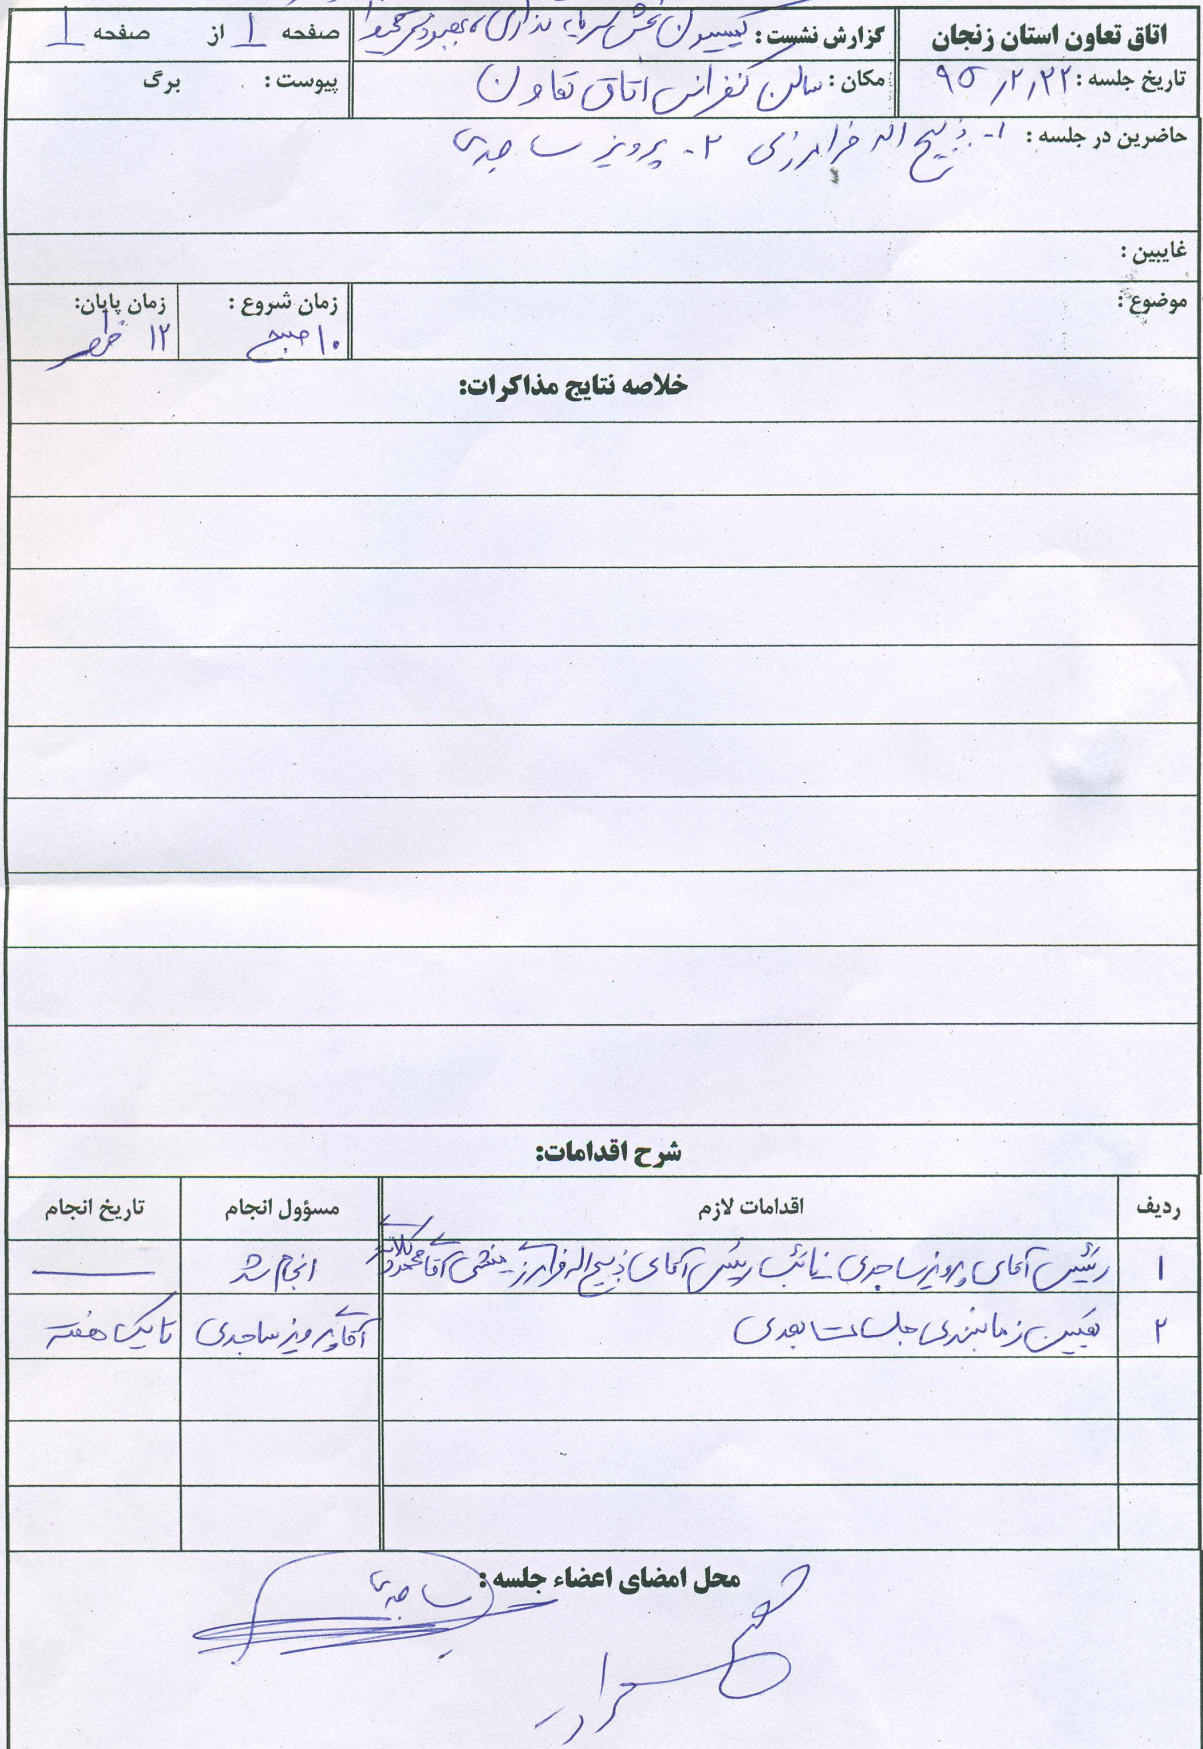 اتاق تعاون استان زنجان
تاریخ جلسه : ۹۵/۲/۲۲
گزارش نشست : کمیسیون بخش سرمایه گذاری ، بهبود
مکان : سالن کنفرانس اتاق تعاون
صفحه ۱ از صفحه ۱
پیوست : برگ
حاضرین در جلسه : ۱- ذبیح اله فرامرزی ۲- پرویز ساجدی
غایبین :
موضوع :
زمان شروع :
۱۰ صبح
زمان پایان:
۱۲ ظهر
خلاصه نتایج مذاکرات:
شرح اقدامات:
ردیف اقدامات لازم مسؤول انجام تاریخ انجام
۱ رئیس آقای پرویز ساجدی نائب رئیس آقای ذبیح اله فرامرزی منشی آقای محمود انجام شد
۲ تعیین زمانبندی جلسات بعدی آقای پرویز ساجدی تا یک هفته
محل امضای اعضاء جلسه :
ساجدی